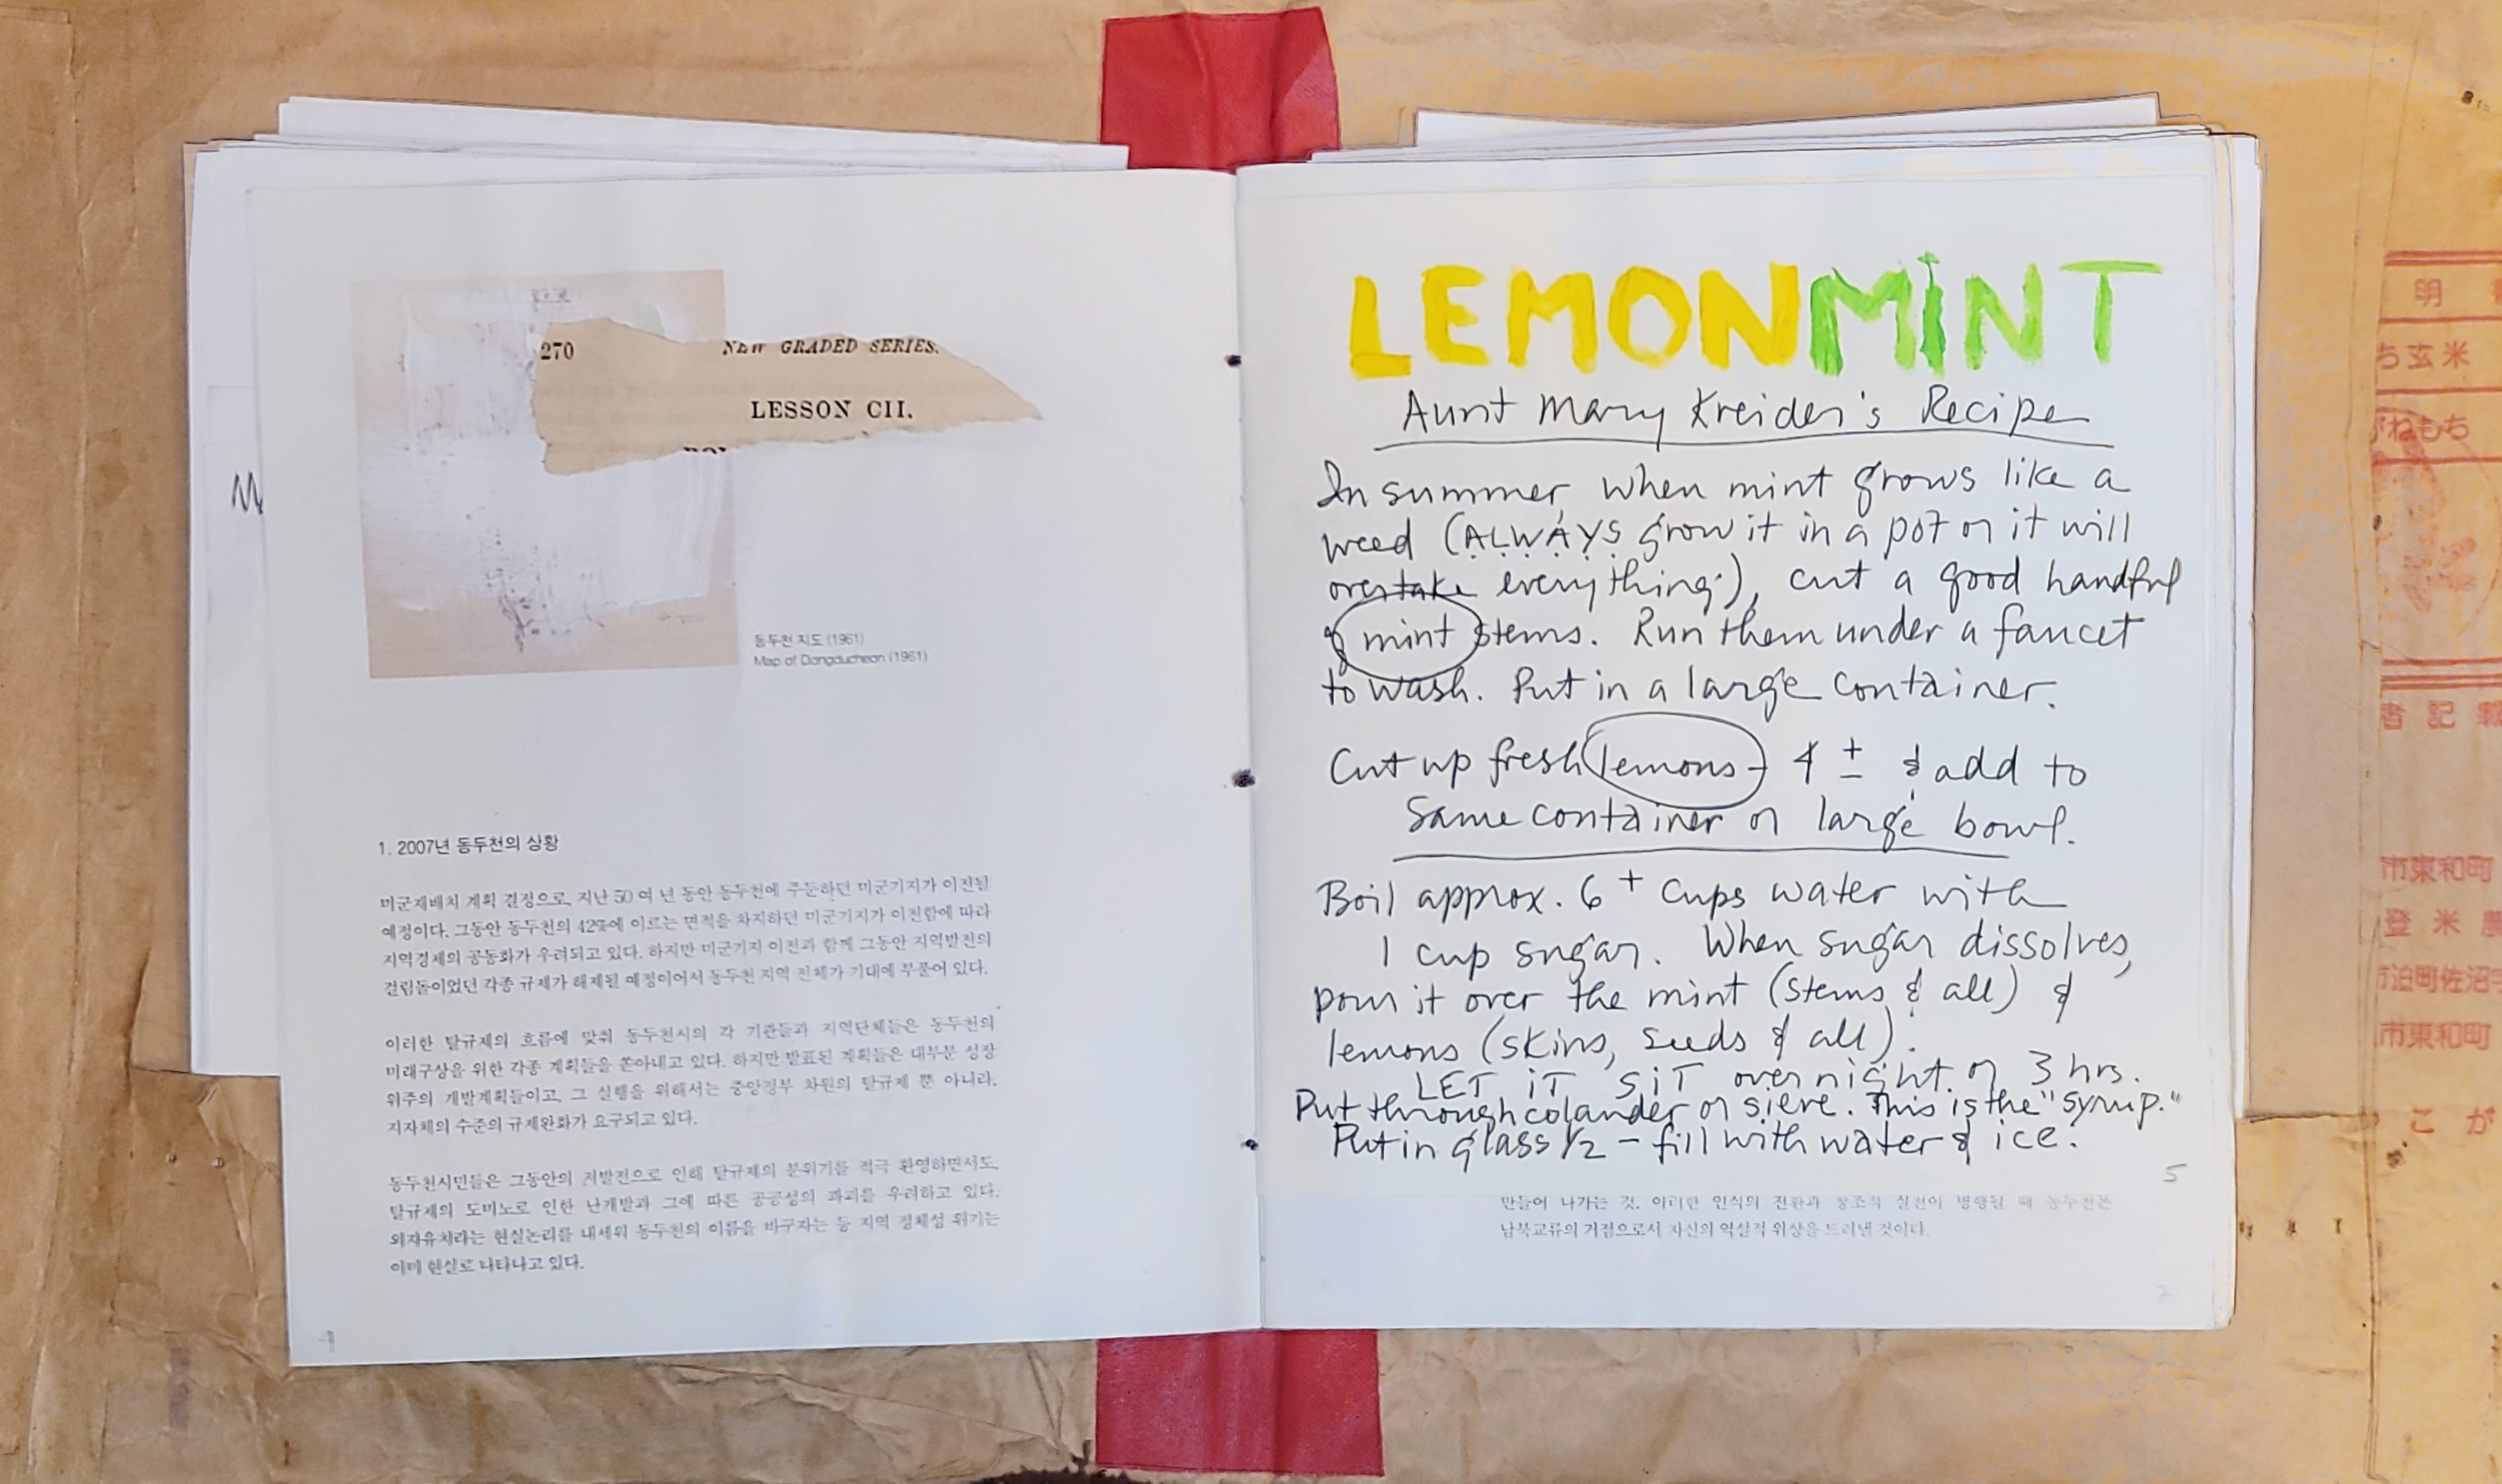 270
NEW GRADED SERIES.
LESSON CII.
동두천 지도 (1961)
Map of Dongducheon (1961)
1. 2007년 동두천의 상황
미군재배치 계획 결정으로, 지난 50 여 년 동안 동두천에 주둔하던 미군기지가 이전될
예정이다. 그동안 동두천의 42%에 이르는 면적을 차지하던 미군기지가 이전함에 따라
지역경제의 공동화가 우려되고 있다. 하지만 미군기지 이전과 함께 그동안 지역발전의
걸림돌이었던 각종 규제가 해제될 예정이어서 동두천 지역 전체가 기대에 부풀어 있다.
이러한 탈규제의 흐름에 맞춰 동두천시의 각 기관들과 지역단체들은 동두천의
미래구상을 위한 각종 계획들을 쏟아내고 있다. 하지만 발표된 계획들은 대부분 성장
위주의 개발계획들이고, 그 실행을 위해서는 중앙정부 차원의 탈규제 뿐 아니라,
지자체의 수준의 규제완화가 요구되고 있다.
동두천시민들은 그동안의 저발전으로 인해 탈규제의 분위기를 적극 환영하면서도,
탈규제의 도미노로 인한 난개발과 그에 따른 공공성의 파괴를 우려하고 있다.
외자유치라는 현실논리를 내세워 동두천의 이름을 바꾸자는 등 지역 정체성 위기는
이미 현실로 나타나고 있다.
LEMONMINT
Aunt Mary Kreider's Recipe
In summer, when mint grows like a
weed (ALWAYS grow it in a pot or it will
overtake everything!), cut a good handful
of mint stems. Run them under a faucet
to wash. Put in a large container.
Cut up fresh lemons - 4 ± & add to
same container or large bowl.
Boil approx. 6+ cups water with
1 cup sugar. When sugar dissolves,
pour it over the mint (stems & all) &
lemons (skins, seeds & all).
LET iT SiT overnight or 3 hrs.
Put through colander or sieve. This is the "syrup."
Put in glass 1/2 - fill with water & ice.
5
만들어 나가는 것. 이러한 인식의 전환과 창조적 실천이 병행될 때 동두천은
남북교류의 거점으로서 자신의 역설적 위상을 드러낼 것이다.
7
明
ち玄米
がねもち
者記載
市東和町
登米農
市泊町佐沼字
市東和町
こが